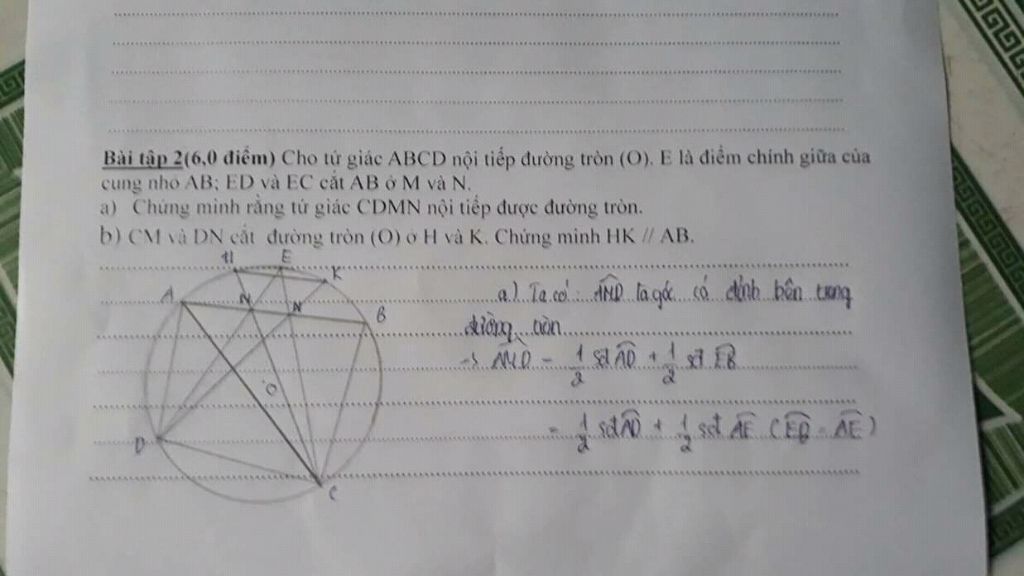 Bài tập 2(6,0 điểm) Cho tứ giác ABCD nội tiếp đường tròn (O). E là điểm chính giữa của
cung nhỏ AB; ED và EC cắt AB ở M và N.
a) Chứng minh rằng tứ giác CDMN nội tiếp được đường tròn.
b) CM và DN cắt đường tròn (O) ở H và K. Chứng minh HK // AB.
H E K
A N N B
O
D
C
a) Ta có: AMD là góc có đỉnh bên trong
đường tròn
→ AMD = 1/2 sđ AD + 1/2 sđ EB
= 1/2 sđ AD + 1/2 sđ AE (EB = AE)